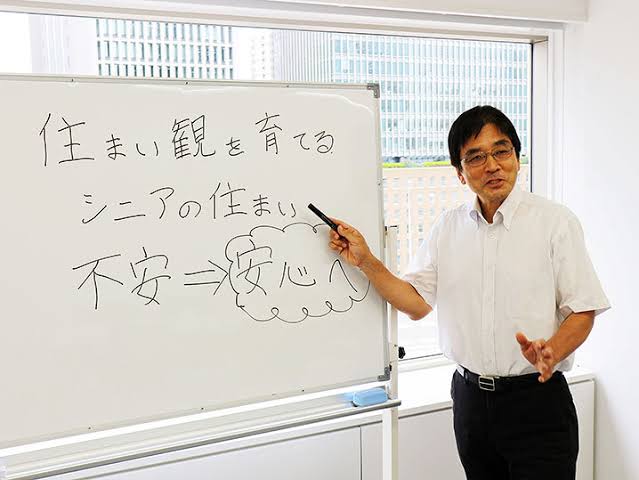 住まい観を育てる
シニアの住まい
不安⇒安心へ